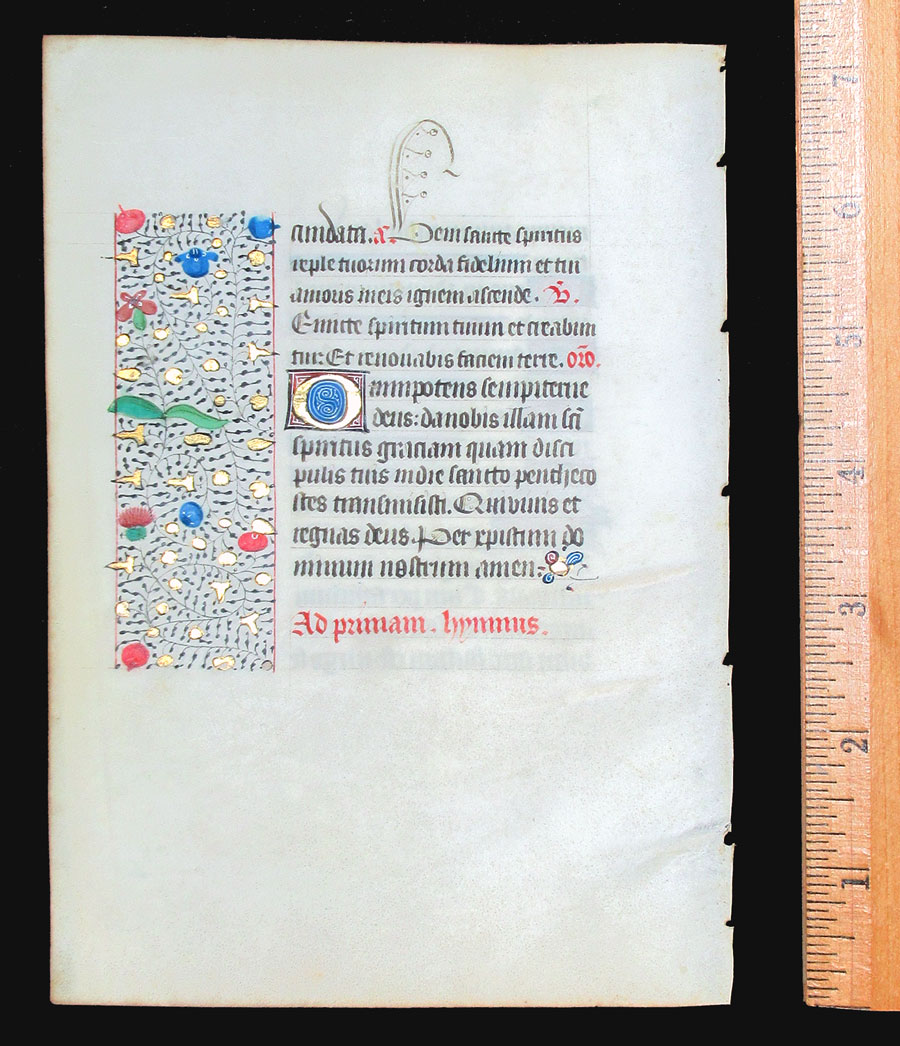 cundata. a. Veni sancte spiritus
reple tuorum corda fidelium et tui
amoris in eis ignem ascende. V̄.
Emicte spiritum tuum et creabun
tur: Et renouabis faciem terre. orō.
Omnipotens sempiterne
deus: da nobis illam sc̄i
spiritus graciam quam disci
pulis tuis in die sancto pentheco
stes transmisisti. Qui viuis et
regnas deus. Per xpistum do
minum nostrum amen:
Ad primam. hymnus.
7
6
5
4
3
2
1